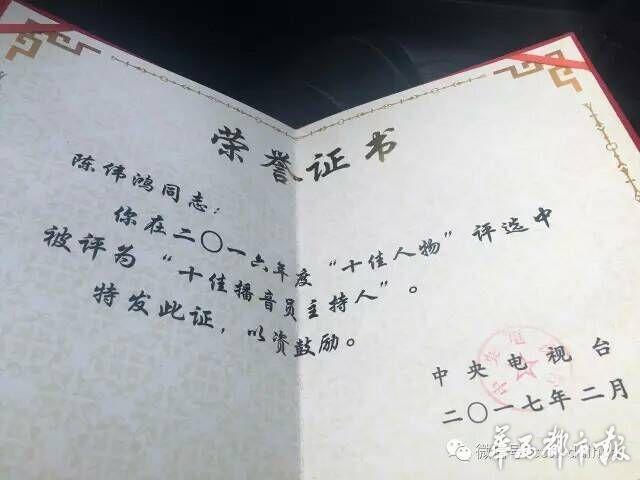 荣誉证书
陈伟鸿同志：
你在二〇一六年度“十佳人物”评选中
被评为“十佳播音员主持人”。
特发此证，以资鼓励。
中央电视台
二〇一七年二月
华西都市报